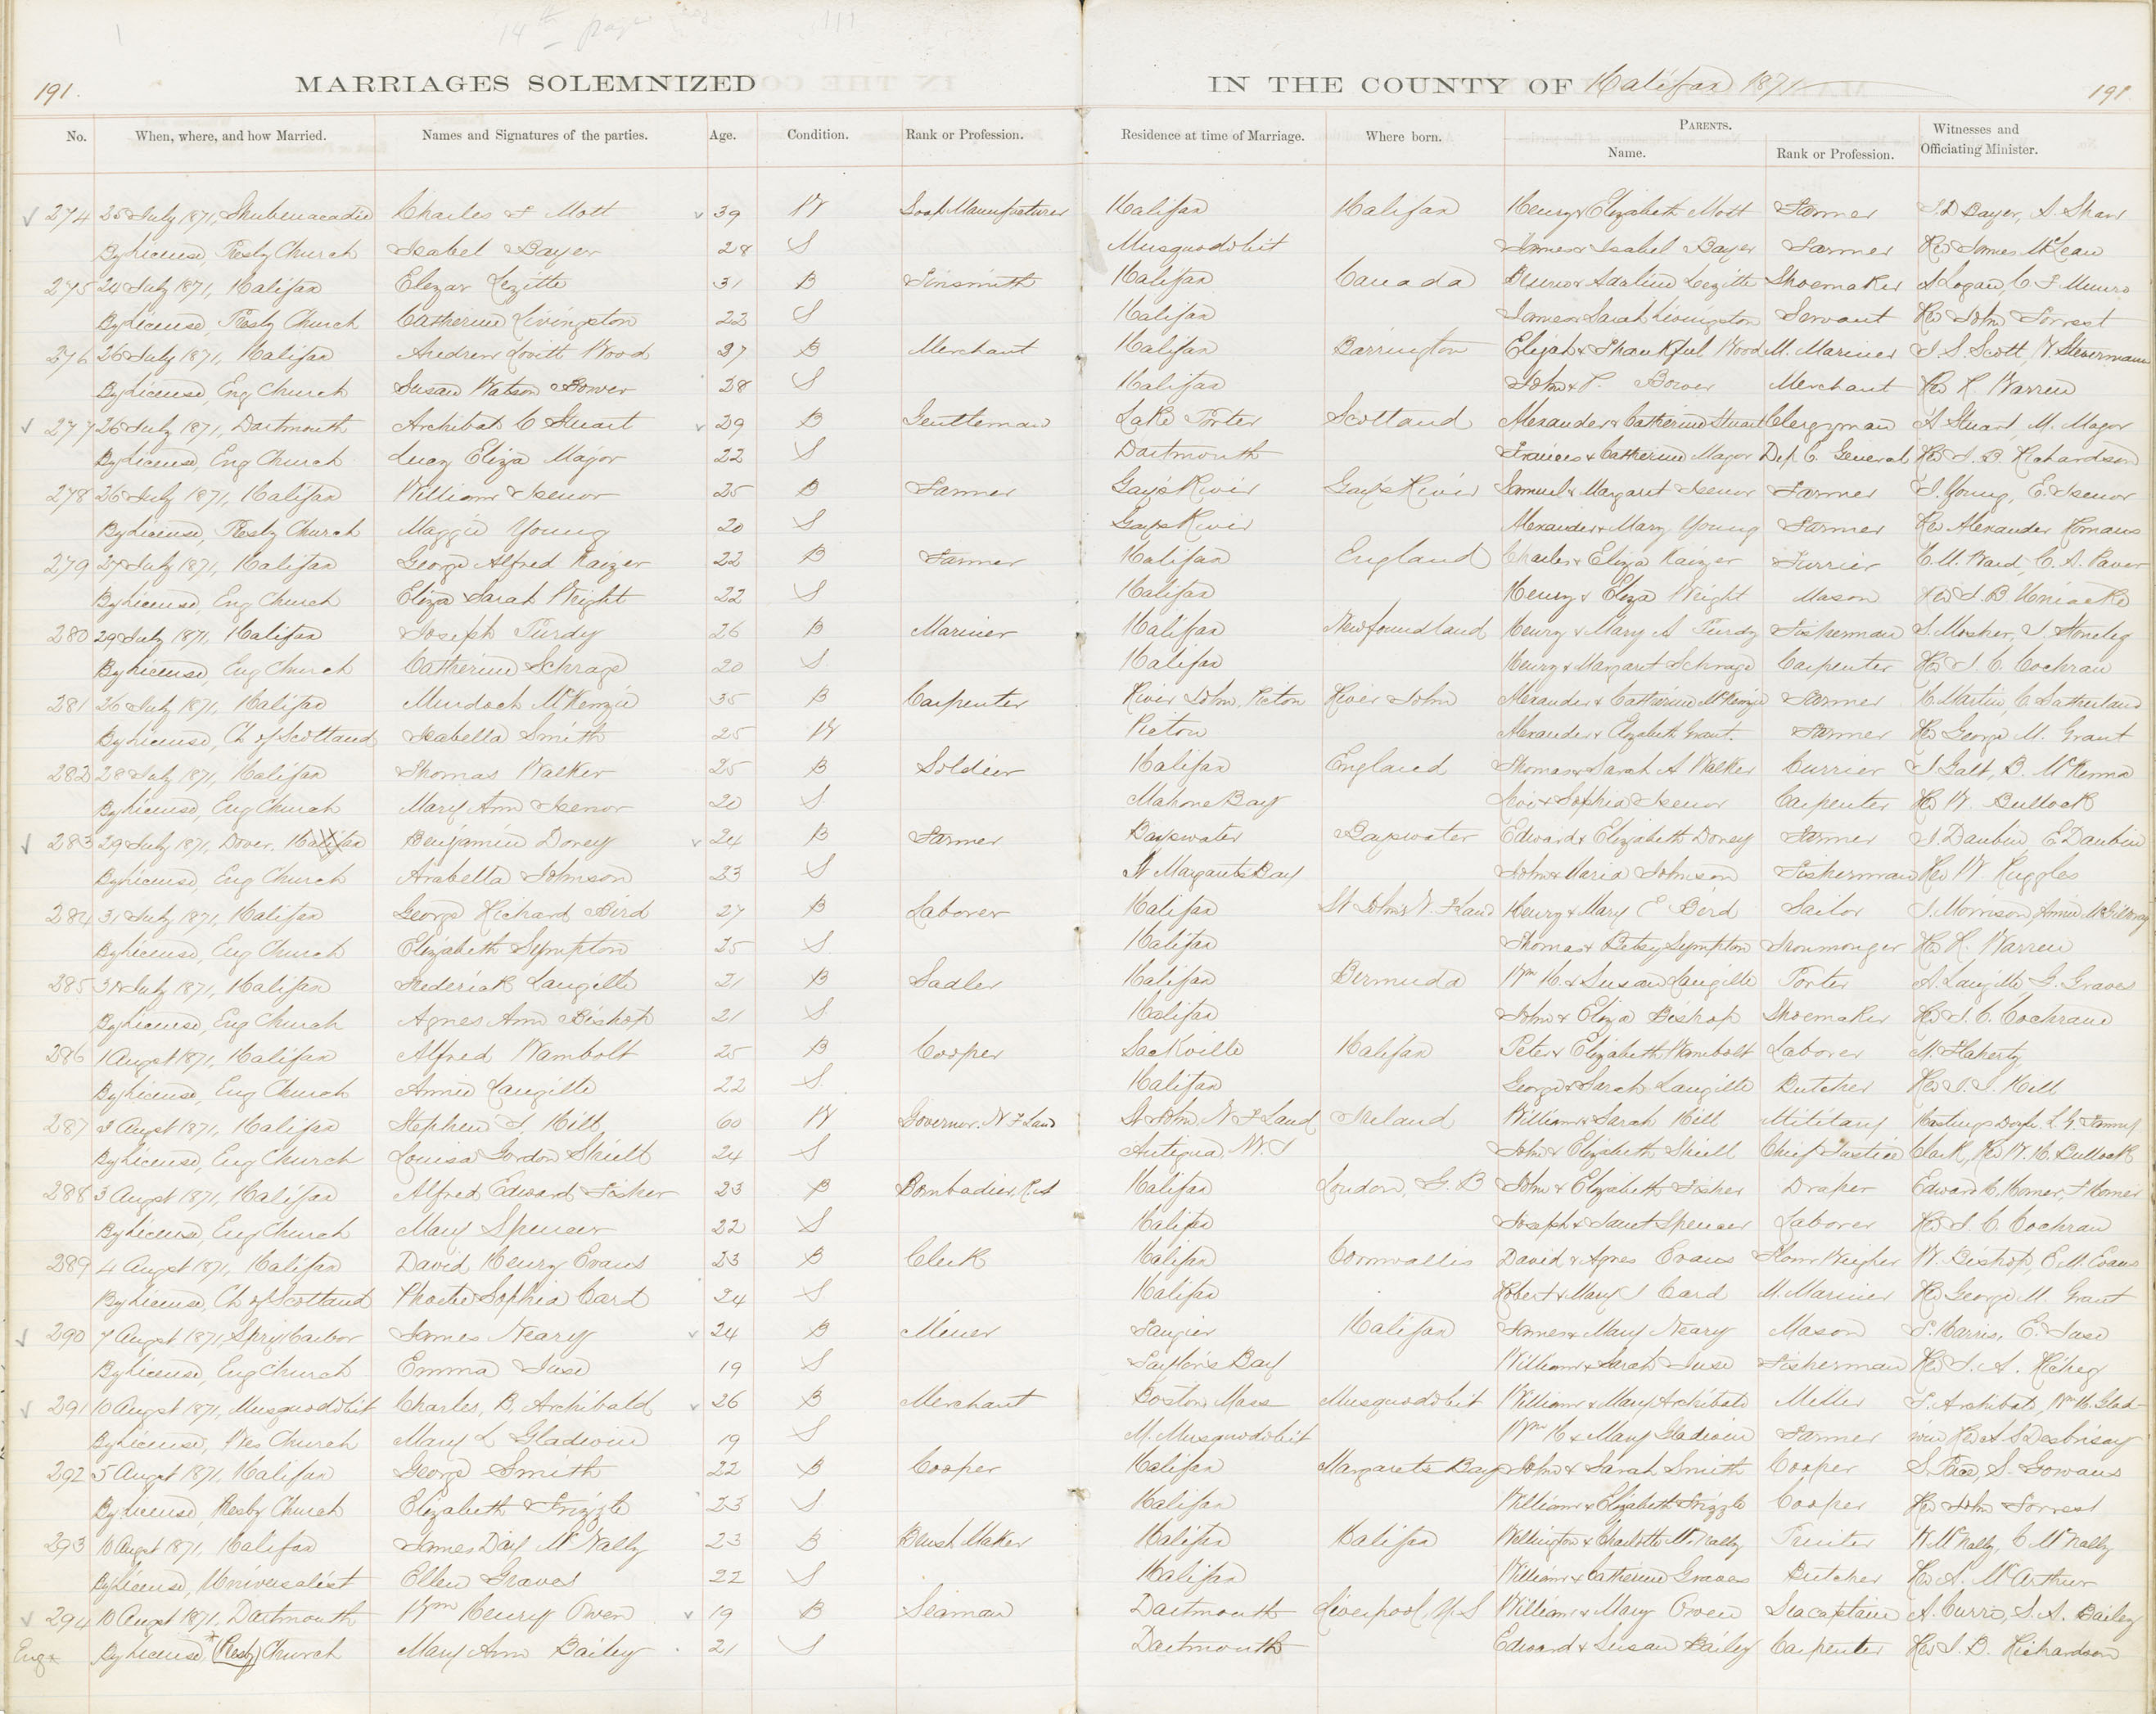 191. MARRIAGES SOLEMNIZED IN THE COUNTY OF Halifax 1871 191
No. When, where, and how Married. Names and Signatures of the parties. Age. Condition. Rank or Profession. Residence at time of Marriage. Where born. PARENTS. Name. Rank or Profession. Witnesses and Officiating Minister.
274 25 July 1871, Shubenacadie Charles F Mott 39 W Soap Manufacturer Halifax Halifax Henry & Elizabeth Mott Farmer J. D Bayer, A. Shaw
By License, Presby Church Isabel Bayer 28 S Musquodobit James & Isabel Bayer Farmer Rev James McLean
275 24 July 1871, Halifax Elezar Lezitte 31 B Tinsmith Halifax Canada Lezitte Shoemaker A Logan, C. F Munro
By License, Presby Church Catherine Livingston 22 S Halifax James & Sarah Livingston Servant Rev John Forrest
276 26 July 1871, Halifax Andrew Lovitt Wood 37 B Merchant Halifax Barrington Elijah & Thankful Wood M. Mariner J. S. Scott, W.
By License, Eng Church Susan Watson Bower 28 S Halifax John & P. Bower Merchant Rev R. Warren
277 26 July 1871, Dartmouth Archibald C Stuart 29 B Gentleman Lake Porter Scotland Alexander & Catherine Stuart Clergyman A Stuart, M. Major
By License, Eng Church Lucy Eliza Major 22 S Dartmouth Francis & Catherine Major Dep C. General Rev J. B. Richardson
278 26 July 1871, Halifax William Isenor 25 B Farmer Gay's River Gay's River Samuel & Margaret Isenor Farmer J. Young, E. Isenor
By License, Presby Church Maggie Young 20 S Gays River Alexander & Mary Young Farmer Rev Alexander Romans
279 27 July 1871, Halifax George Alfred Kaizer 22 B Farmer Halifax England Charles & Eliza Kaizer Furrier E. M. Ward, C. A. Paver
By License, Eng Church Eliza Sarah Wright 22 S Halifax Henry & Eliza Wright Mason Rev J. B Uniacke
280 29 July 1871, Halifax Joseph Purdy 26 B Mariner Halifax Newfoundland Henry & Mary A Purdy Fisherman S. Mosher, J.
By License, Eng Church Catherine Schrage 20 S Halifax Henry & Margaret Schrage Carpenter Rev J. C. Cochran
281 26 July 1871, Halifax Murdoch McKenzie 35 B Carpenter River John, Picton River John Alexander & Catherine McKenzie Farmer H. Martin, C Sutherland
By License, Ch of Scotland Isabella Smith 25 W Picton Alexander & Elizabeth Grant. Farmer Rev George M. Grant
282 28 July 1871, Halifax Thomas Walker 25 B Soldier Halifax England Thomas & Sarah A Walker Currier J Galt, B. McKenna
By License, Eng Church Mary Ann Isenor 20 S Mahone Bay Levi & Sophia Isenor Carpenter Rev W. Bullock
283 29 July 1871, Dover, Halifax Benjamin Dorey 24 B Farmer Bayswater Bayswater Edward & Elizabeth Dorey Farmer J. Daubin, E Daubin
By License, Eng Church Arabella Johnson 23 S St Margarets Bay John & Maria Johnson Fisherman Rev W Ruggles
284 31 July 1871, Halifax George Richard Bird 27 B Laborer Halifax St John's N. F Land Henry & Mary E Bird Sailor J. Morrison, Annie
By License, Eng Church Elizabeth Sympton 25 S. Halifax Thomas & Betsy Sympton Ironmonger Rev R. Warren
285 31 July 1871, Halifax Frederick Langille 21 B Sadler Halifax Bermuda Wm H. & Susan Langille Porter A. Langille G. Graves
By License, Eng Church Agnes Ann Bishop 21 S Halifax John & Eliza Bishop Shoemaker Rev J. C. Cochrane
286 1 Augst 1871, Halifax Alfred Wambolt 25 B Cooper Sackville Halifax Peter & Elizabeth Wambolt Laborer M. Flaherty
By License, Eng Church Annie Langille 22 S Halifax George & Sarah Langille Butcher Rev J. J. Hill
287 2 Augst 1871, Halifax Stephen J. Hill 60 W Governor. N F Land St John, N. F Land Ireland William & Sarah Hill Military Hastings Doyle, L. G.
By License, Eng Church Louisa Gordon Shiell 24 S Antigua, W. I John & Elizabeth Shiell Chief Justice Clark, Rev W. H. Bullock
288 3 Augst 1871, Halifax Alfred Edward Fisher 23 B Bombadier, R.A Halifax London, G. B John & Elizabeth Fisher Draper Edward C. Homer, F Homer
By License, Eng Church Mary Spencer 22 S Halifax Joseph & Janet Spencer Laborer Rev J. C. Cochran
289 4 Augst 1871, Halifax David Henry Evans 23 B Clerk Halifax Cornwallis David & Agnes Evans Flour Weigher W. Bishop, E. M. Evans
By License, Ch of Scotland Phoebe Sophia Card 24 S Halifax Robert & Mary J Card M. Mariner Rev George M. Grant
290 7 Augst 1871, Spry Harbor James Neary 24 B Miner Tangier Halifax James & Mary Neary Mason P. Harris, E. Jase
By License, Eng Church Emma Jase 19 S Taylor's Bay William & Sarah Jase Fisherman Rev J. A. Richey
291 10 Augst 1871, Musquodobit Charles, B. Archibald 26 B Merchant Boston, Mass Musquodobit William & Mary Archibald Miller P. Archibald, Wm H. Glad-
By License, Wes Church Mary L Gladwin 19 S M. Musquodobit Wm H & Mary Gladwin Farmer win Rev A S Desbrisay
292 5 Augst 1871, Halifax George Smith 22 B Cooper Halifax Margarets Bay John & Sarah Smith Cooper S. S. Gowans
By License, Presby Church Elizabeth Frizzle 23 S Halifax William & Elizabeth Frizzle Cooper Rev John Forrest
293 10 Augst 1871, Halifax James Day McNally 23 B Brush Maker Halifax Halifax Wellington & Charlotte McNally Printer W. McNally, C McNally
By License, Universalist Ellen Graves 22 S Halifax William & Catherine Graves Butcher Rev A. McArthur
294 10 Augst 1871, Dartmouth Wm Henry Owen 19 B Seaman Dartmouth Liverpool, N. S William & Mary Owen Seacaptain A. Currie, S. A. Bailey
Eng x By License,* (Presby) Church Mary Ann Bailey 21 S Dartmouth Edward & Susan Bailey Carpenter Rev J. B. Richardson